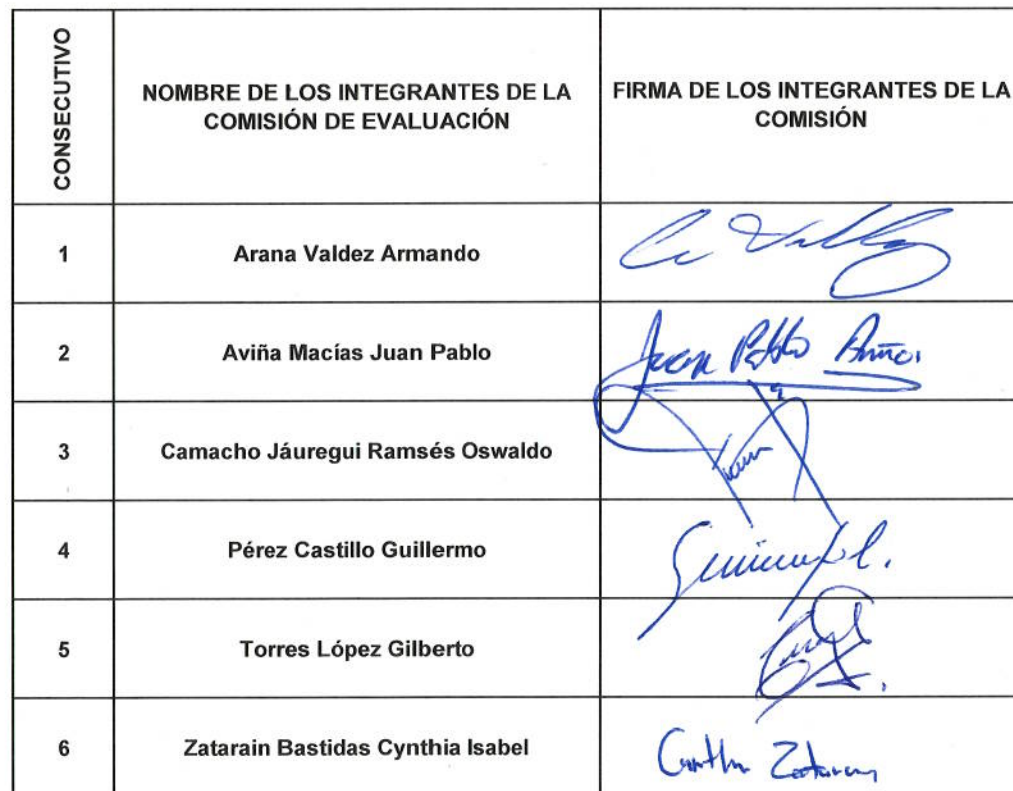 CONSECUTIVO
NOMBRE DE LOS INTEGRANTES DE LA
COMISIÓN DE EVALUACIÓN
FIRMA DE LOS INTEGRANTES DE LA
COMISIÓN
1
Arana Valdez Armando
2
Aviña Macías Juan Pablo
Juan Pablo
3
Camacho Jáuregui Ramsés Oswaldo
4
Pérez Castillo Guillermo
5
Torres López Gilberto
6
Zatarain Bastidas Cynthia Isabel